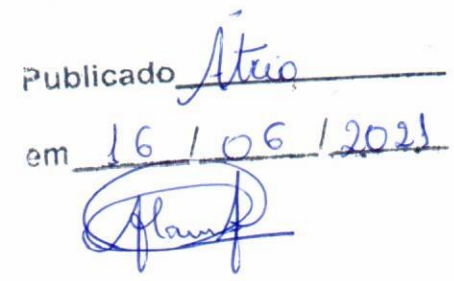 Publicado Átrio
em 16 / 06 / 2021